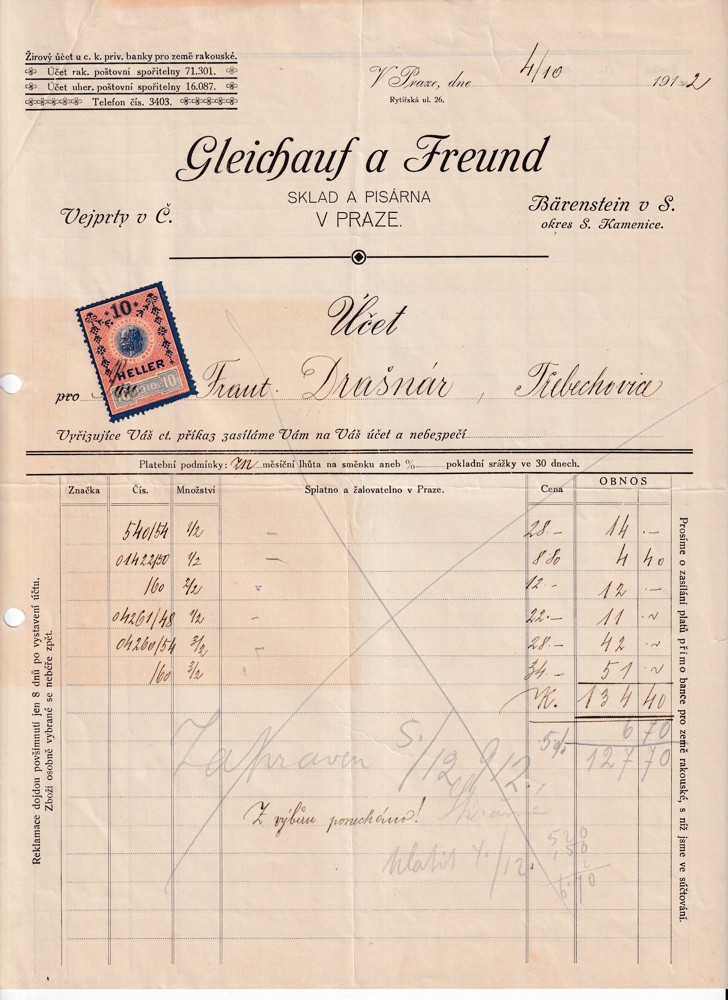 Žirový účet u c. k. priv. banky pro země rakouské.
Účet rak. poštovní spořitelny 71.301.
Účet uher. poštovní spořitelny 16.087.
Telefon čís. 3403.
V Praze, dne 4/10 1912
Rytířská ul. 26.
Gleichauf a Freund
SKLAD A PISÁRNA
V PRAZE.
Vejprty v Č.
Bärenstein v S.
okres S. Kamenice.
Účet
10
HELLER
10
pro Frant. Drašnár, Třebechovice
Vyřizujíce Váš ct. příkaz zasíláme Vám na Váš účet a nebezpečí
Platební podmínky: 3/m měsíční lhůta na směnku aneb % pokladní srážky ve 30 dnech.
Značka Čís. Množství Splatno a žalovatelno v Praze. Cena OBNOS
540/54 1/2 28.– 14 .–
01422/50 1/2 8 80 4 40
/60 2/2 12.– 12 .–
04261/48 1/2 22.– 11 .–
04260/54 3/2 28.– 42 .–
/60 3/2 34.– 51 .–
K. 134 40
5% 6 70
127 70
Zapraven 5/12 912.
Z výběru ponecháno!
520
150
6.70
Reklamace dojdou povšimnutí jen 8 dnů po vystavení účtu.
Zboží osobně vybrané se nebéře zpět.
Prosíme o zasílání platů přímo bance pro země rakouské, s níž jsme ve súčtování.